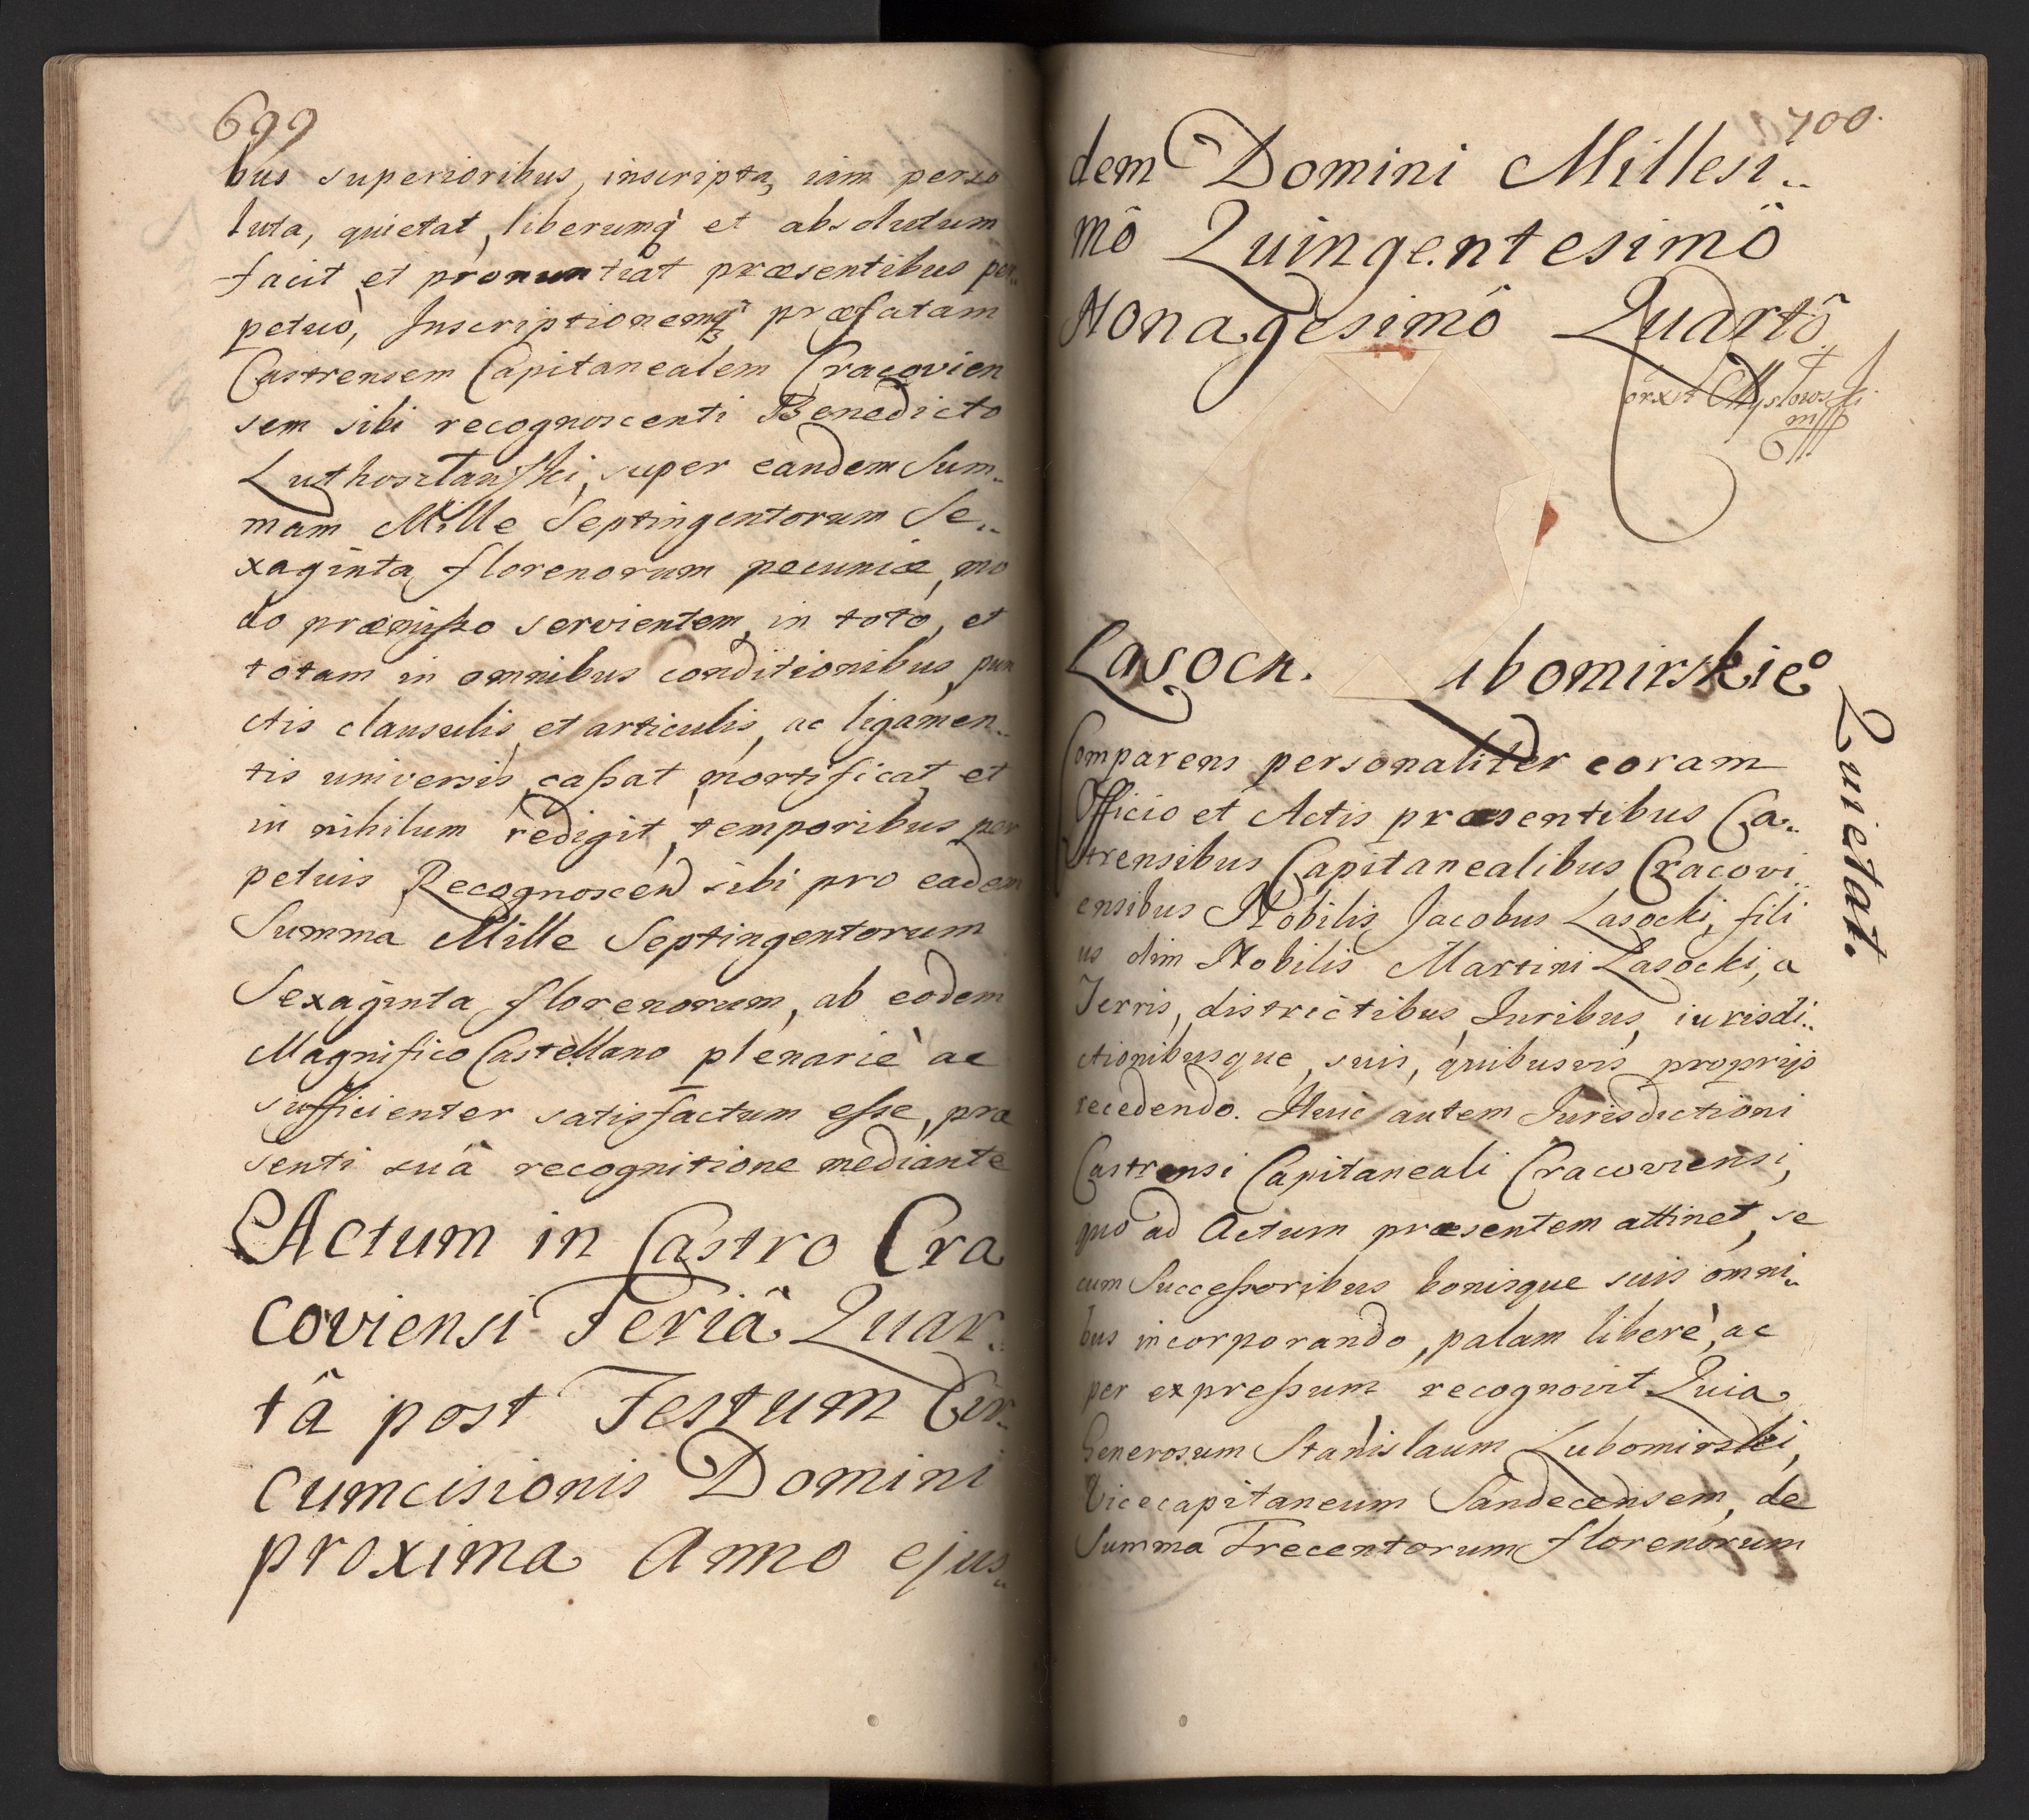 699
bus superioribus, inscripta, iam perso
luta, quietat, liberumq̀ et absolutum
facit et pronuntiat præsentibus per..
petuò, Inscriptionemq̀ præfatam
Castrensem Capitanealem Cracovien
sem sibi recognoscenti Benedicto
Luthosłański, super eandem Sum..
mam Mille Septingentorum Se..
xaginta florenorum pecuniæ, mo
do præmisso servientem, in toto, et
totam in omnibus conditionibus, pun
ctis clausulis, et articulis, ac ligamen..
tis universis, cassat, mortificat, et
in nihilum redigit, temporibus per
petuis Recognoscend sibi pro eadem
Summa Mille Septingentorum
Sexaginta florenorum, ab eodem
Magnifico Castellano plenariè ac
sufficienter satisfactum esse, præ
senti suâ recognitione mediante
Actum in Castro Cra
coviensi Feriâ Quar..
tâ post Festum Cir..
cumcisionis Domini
proxima Anno ejus..
700.
dem Domini Millesi..
mô Quingentesimô
Nonagesimô Quartô.
Lasock. ubomirskie°
Quietat.
Comparens personaliter coram
Officio et Actis præsentibus Ca..
strensibus Capitanealibus Cracovi..
ensibus Nobilis Jacobus Lasocki, fili
us olim Nobilis Martini Lasocki, a
Terris, districtibus, Juribus, iurisdi..
ctionibusque, suis, quibusvis proprijs
recedendo. Huic autem Jurisdictioni
Castrensi Capitaneali Cracoviensi,
quo ad Actum præsentem attinet, se
cum Successoribus bonisque suis omni..
bus incorporando, palam liberè, ac
per expressum recognovit Quia
Generosum Stanislaum Lubomirski,
Vicecapitaneum Sandecensem, de
Summa Trecentorum florenorum